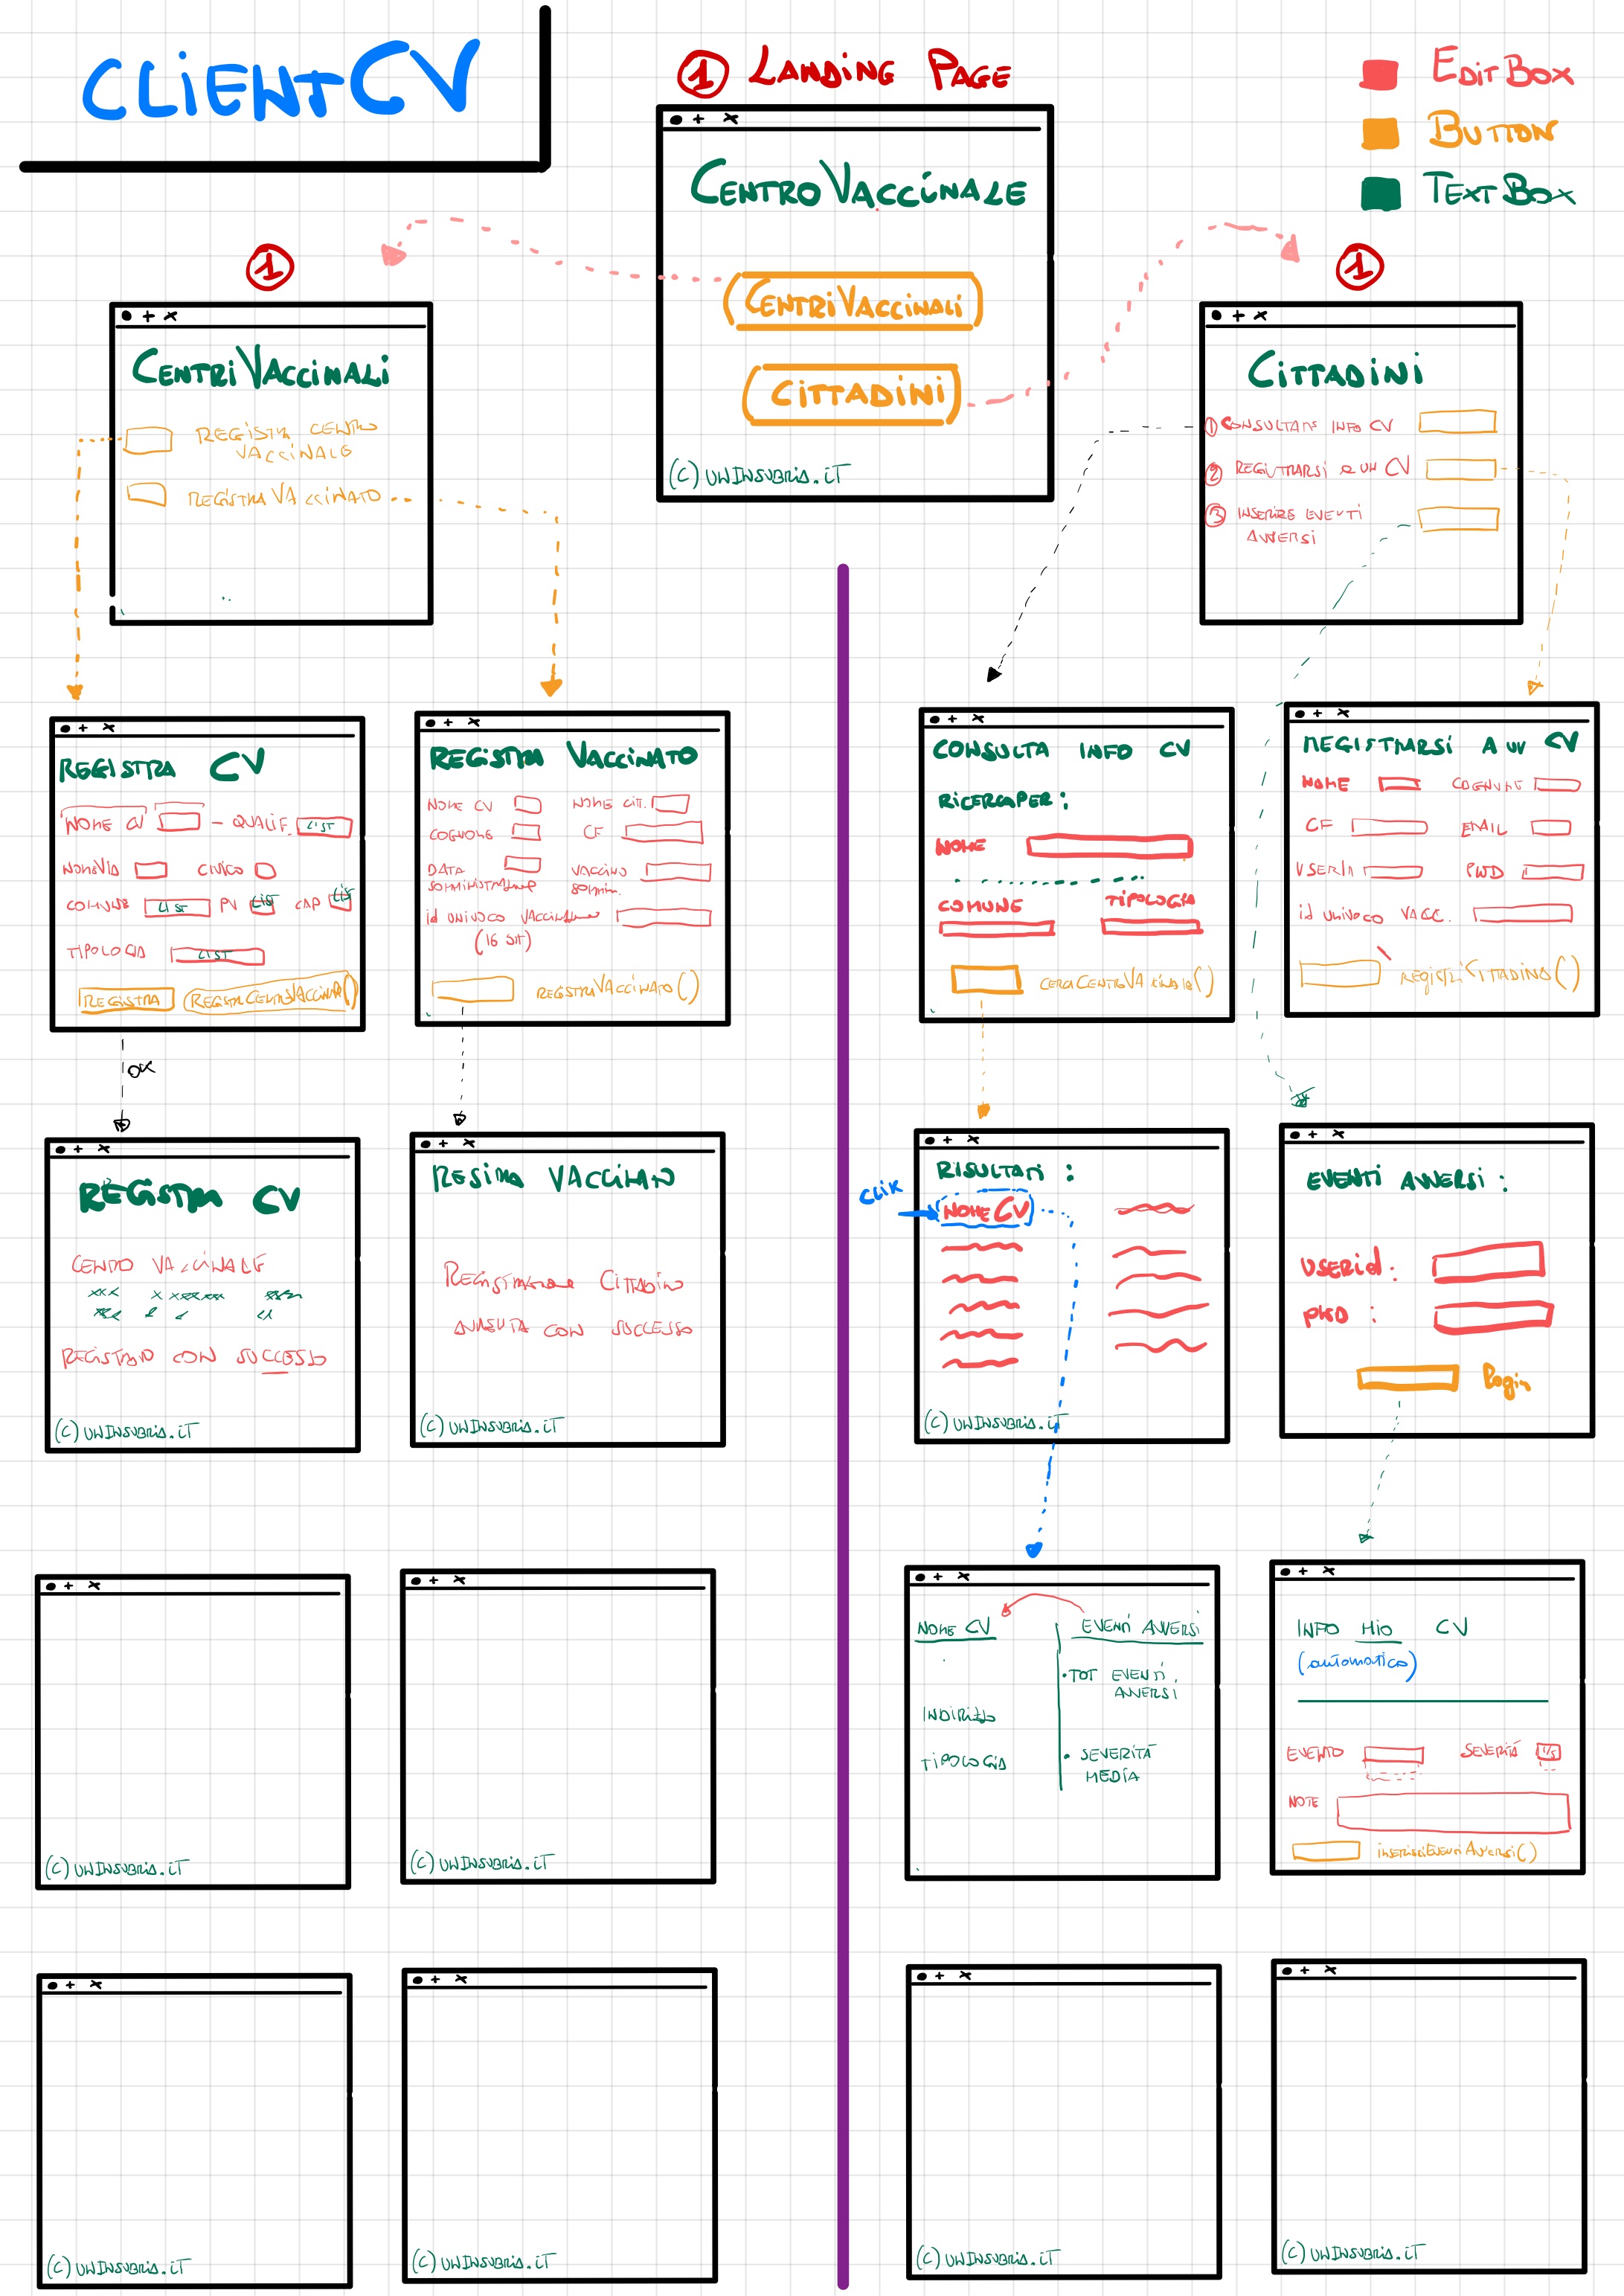 CLIENTCV
1 LANDING PAGE
EDITBOX
BUTTON
TEXTBOX
CENTROVACCINALE
CENTRIVACCINALI
CITTADINI
(C) UNINSUBRIA.IT
1
CENTRIVACCINALI
REGISTRA CENTRO
VACCINALE
REGISTRA VACCINATO
1
CITTADINI
1 CONSULTARE INFO CV
2 REGISTRARSI A UN CV
3 INSERIRE EVENTI
AVVERSI
REGISTRA CV
NOME CV - QUALIF. LIST
NOMEVIA CIVICO
COMUNE LIST PV LIST CAP LIST
TIPOLOGIA LIST
REGISTRA
OK
REGISTRA VACCINATO
NOME CV NOME CIT.
COGNOME CF
DATA VACCINO
SOMMIN.
id UNIVOCO
(16 BIT)
REGISTRAVACCINATO()
CONSULTA INFO CV
RICERCAPER:
NOME
COMUNE TIPOLOGIA
REGISTRARSI A UN CV
NOME COGNOME
CF EMAIL
USERID PWD
id UNIVOCO VACC.
REGISTRACITTADINO()
REGISTRA CV
CENTRO VACCINALE
REGISTRATO CON SUCCESSO
(C) UNINSUBRIA.IT
VACCINATO
REGISTRAZIONE CITTADINO
AVVENUTA CON SUCCESSO
(C) UNINSUBRIA.IT
CLIK
RISULTATI:
NOMECV
(C) UNINSUBRIA.IT
EVENTI AVVERSI:
USERid:
PWD:
login
(C) UNINSUBRIA.IT
(C) UNINSUBRIA.IT
NOME CV
INDIRIZZO
TIPOLOGIA
EVENTI AVVERSI
• TOT EVENTI
AVVERSI
• SEVERITÀ
MEDIA
INFO MIO CV
(automatico)
EVENTO SEVERITÀ 1/5
NOTE
INSERISCIEVENTIAVVERSI()
(C) UNINSUBRIA.IT
(C) UNINSUBRIA.IT
(C) UNINSUBRIA.IT
(C) UNINSUBRIA.IT